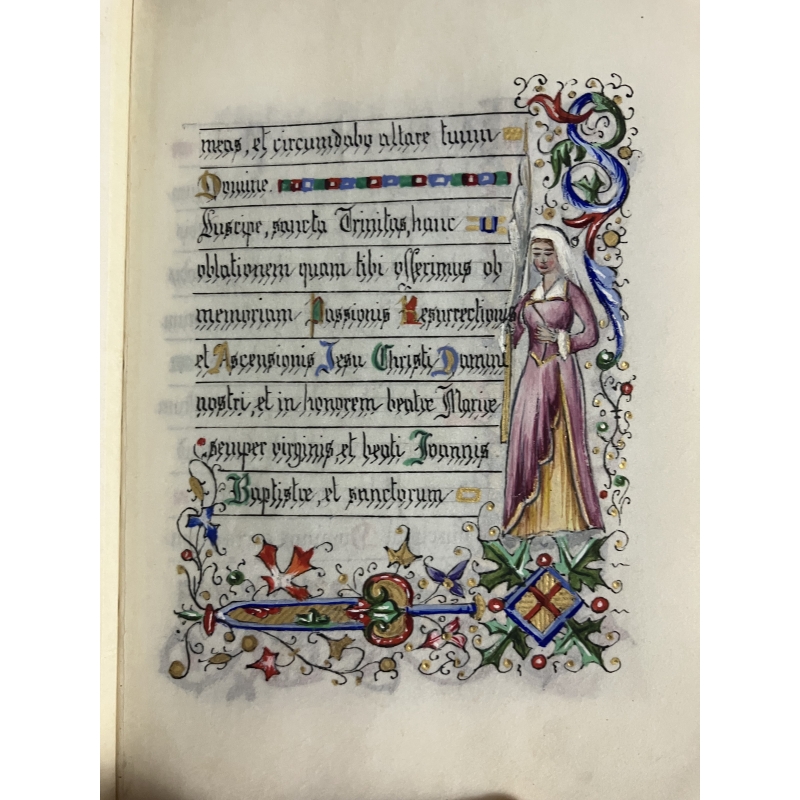 meas, et circumdabo altare tuum
Domine.
Suscipe, sancta Trinitas, hanc
oblationem quam tibi offerimus ob
memoriam Passionis Resurrectionis
et Ascensionis Jesu Christi Domini
nostri, et in honorem beatæ Mariæ
semper virginis, et beati Joannis
Baptistæ, et sanctorum